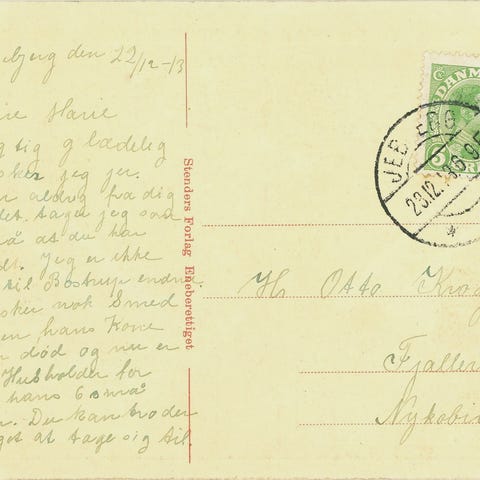 bjerg den 22/12-13
Marie
tig g lædelig
sker jeg jer.
aldrig fra dig
det. tager jeg saa
på at du har
dt. Jeg er ikke
til Bostrup endnu
sker nok Smed
en, hans Kone
r död og nu er
Husholder for
hans 6 små
r. Du kan troder
get at tage sig til
Stenders Forlag Eneberettiget
DANM
5
JEB ERG
23.12.13 6-9 E
H Otto Kro
Fjaller
Nykøbi